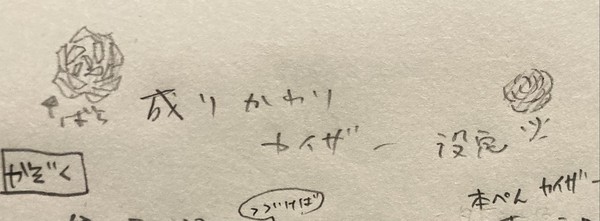 ばら
成りかわり
カイザー 設定
かぞく
つづけば
本ぺん カイザー